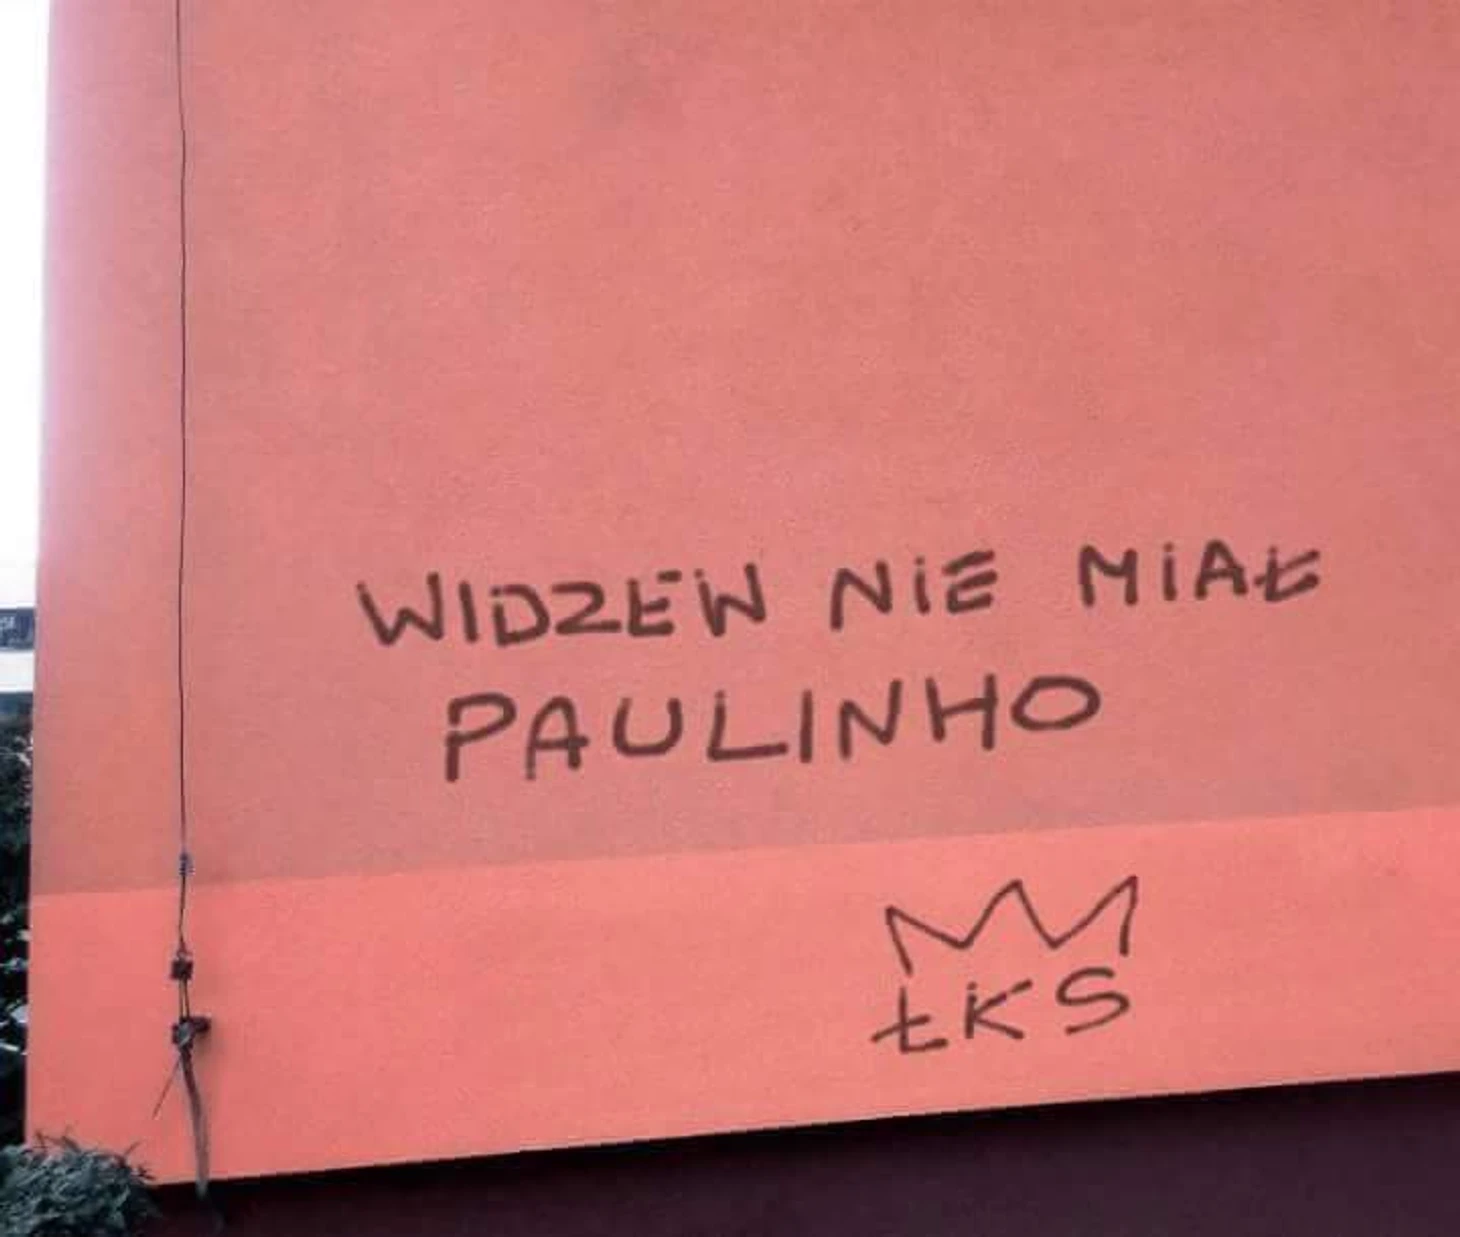 WIDZEW NIE MIAŁ
PAULINHO
ŁKS